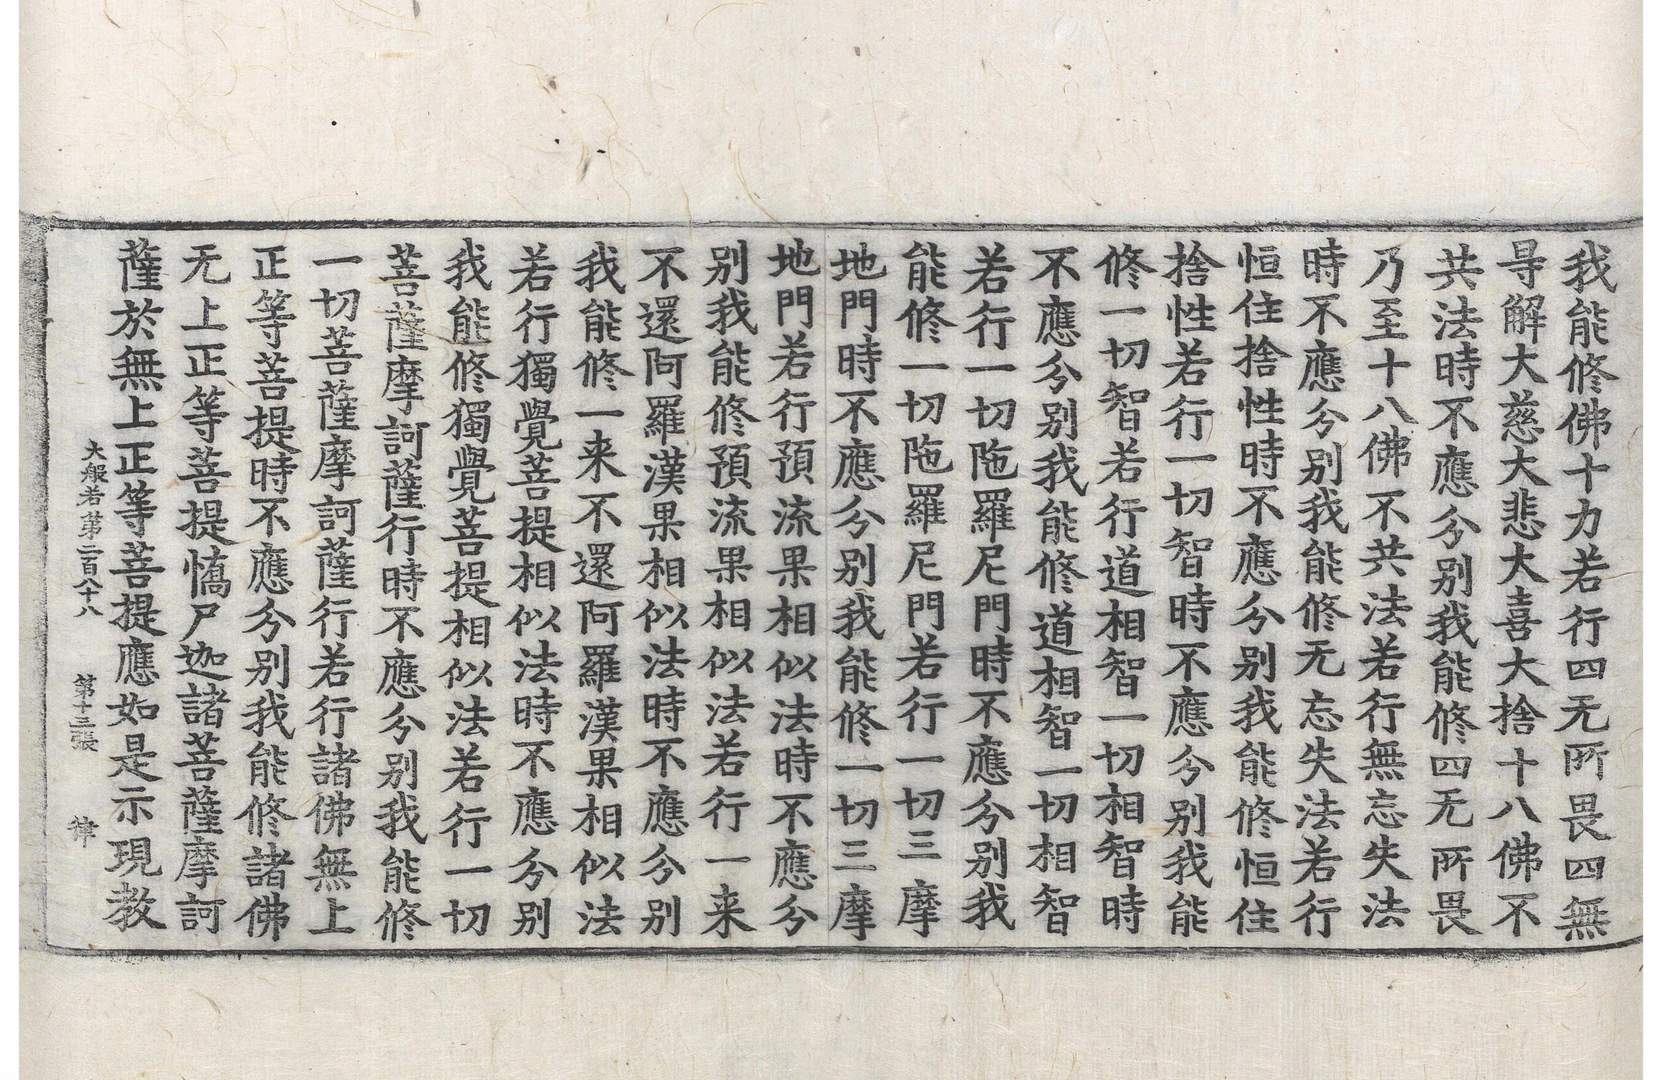 我能修佛十力若行四无所畏四無
㝵解大慈大悲大喜大捨十八佛不
共法時不應分別我能修四无所畏
乃至十八佛不共法若行無忘失法
時不應分別我能修无忘失法若行
恒住捨性時不應分別我能修恒住
捨性若行一切智時不應分別我能
修一切智若行道相智一切相智時
不應分別我能修道相智一切相智
若行一切陁羅尼門時不應分別我
能修一切陁羅尼門若行一切三摩
地門時不應分別我能修一切三摩
地門若行預流果相似法時不應分
別我能修預流果相似法若行一来
不還阿羅漢果相似法時不應分別
我能修一来不還阿羅漢果相似法
若行獨覺菩提相似法時不應分別
我能修獨覺菩提相似法若行一切
菩薩摩訶薩行時不應分別我能修
一切菩薩摩訶薩行若行諸佛無上
正等菩提時不應分別我能修諸佛
无上正等菩提憍尸迦諸菩薩摩訶
薩於無上正等菩提應如是示現教
大般若第二百八十八 第十三張 律